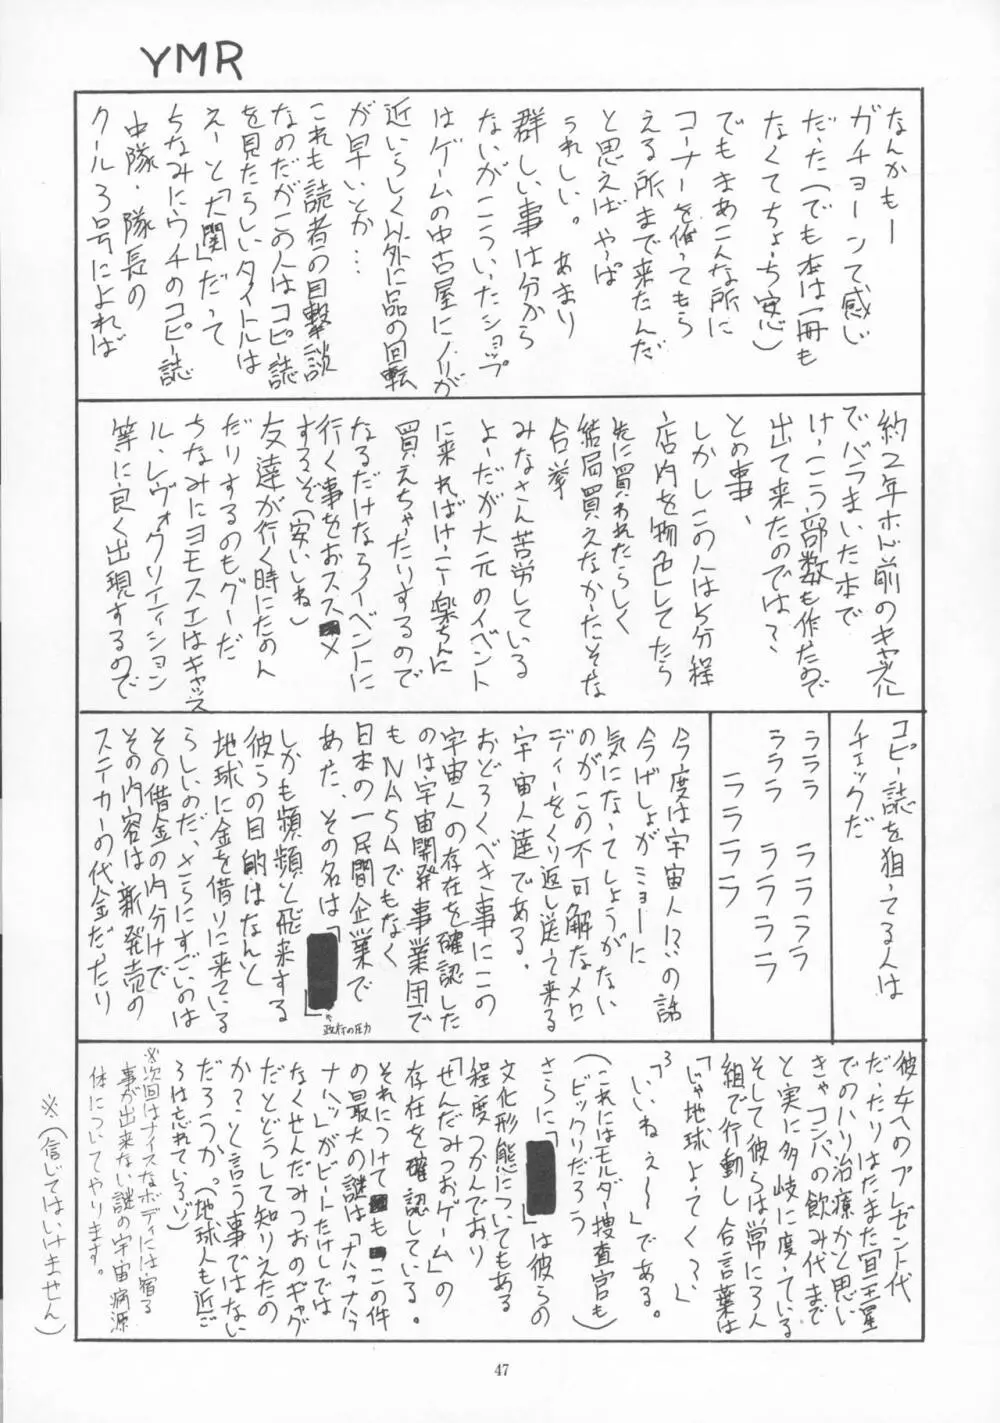 YMR
なんかもー
ガチョーンて感じ
だった(でも本は一冊も
なくてちょっち安心)
でもまあこんな所に
コーナーを作ってもら
える所まで来たんだ
と思えばやっぱ
うれしい。あまり
群しい事は分から
ないがこういったショップ
はゲームの中古屋にノリが
近いらしく以外に品の回転
が早いとか…
これも読者の目撃談
なのだがこの人はコピー誌
を見たらしいタイトルは
えーと「大関」だって
ちなみにウチのコピー誌
中隊・隊長の
クール3号によれば
約2年ホド前のキャノル
でバラまいた本で
けっこう部数も作ったので
出て来たのでは?
との事、
しかしこの人は5分程
店内を物色してたら
先に買われたらしく
結局買えなかったそな
合挙
みなさん苦労している
よーだが大元のイベント
に来ればけっこー楽ちんに
買えちゃたりするので
なるだけならイベントに
行く事をおススメ
するぞ(安いしね)
友達が行く時にたのん
だりするのもグーだ
ちなみにヨモスエはキャッス
ル、レヴォクリエイション
等に良く出現するので
コピー誌を狙ってる人は
チェックだ
ラララ ラララララ
ラララ ラララララ
ラララララ
今度は宇宙人!?の話
今げしょがミョーに
気になってしょうがない
のがこの不可解なメロ
ディーをくり返し送って来る
宇宙人達である。
おどろくべき事にこの
宇宙人の存在を確認した
のは宇宙開発事業団で
もNASAでもなく
日本の一民間企業で
あた、その名は「
」
政府の圧力
しかも頻頻と飛来する
彼らの目的はなんと
地球に金を借りに来ている
らしいのだ、さらにすごいのは
その借金の内分けで
その内容は新発売の
ステイカーの代金だったり
彼女へのプレゼント代
だったりはたまた冥王星
でのハリ治療かと思い
きゃコンパの飲み代まで
と実に多岐に度っている
そして彼らは常に3人
組で行動し合言葉は
「じゃ地球よってく?」
3「いいねぇ〜」である。
(これにはモルダー捜査官も
ビックリだろう
さらに「」は彼らの
文化形態についてもある
程度つかんでおり
「せんだみつおゲーム」の
存在を確認している。
それにつけても この件
の最大の謎は「ナハナハ
ナハッ」がビートたけしでは
なくせんだみつおのギャグ
だとどうして知りえたの
か?と言う事ではない
だろうか。(地球人も近ご
ろは忘れているゾ)
※次回はナイスなボディには宿る
事が出来ない謎の宇宙病源
体についてやります。
※(信じてはいけません)
47